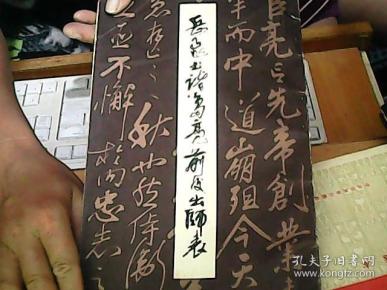 臣亮言先帝創業
半而中道崩殂今天
岳飛書諸葛亮前後出師表
急存亡之秋也然侍衛
之臣不懈於內忠志之
孔夫子旧书网